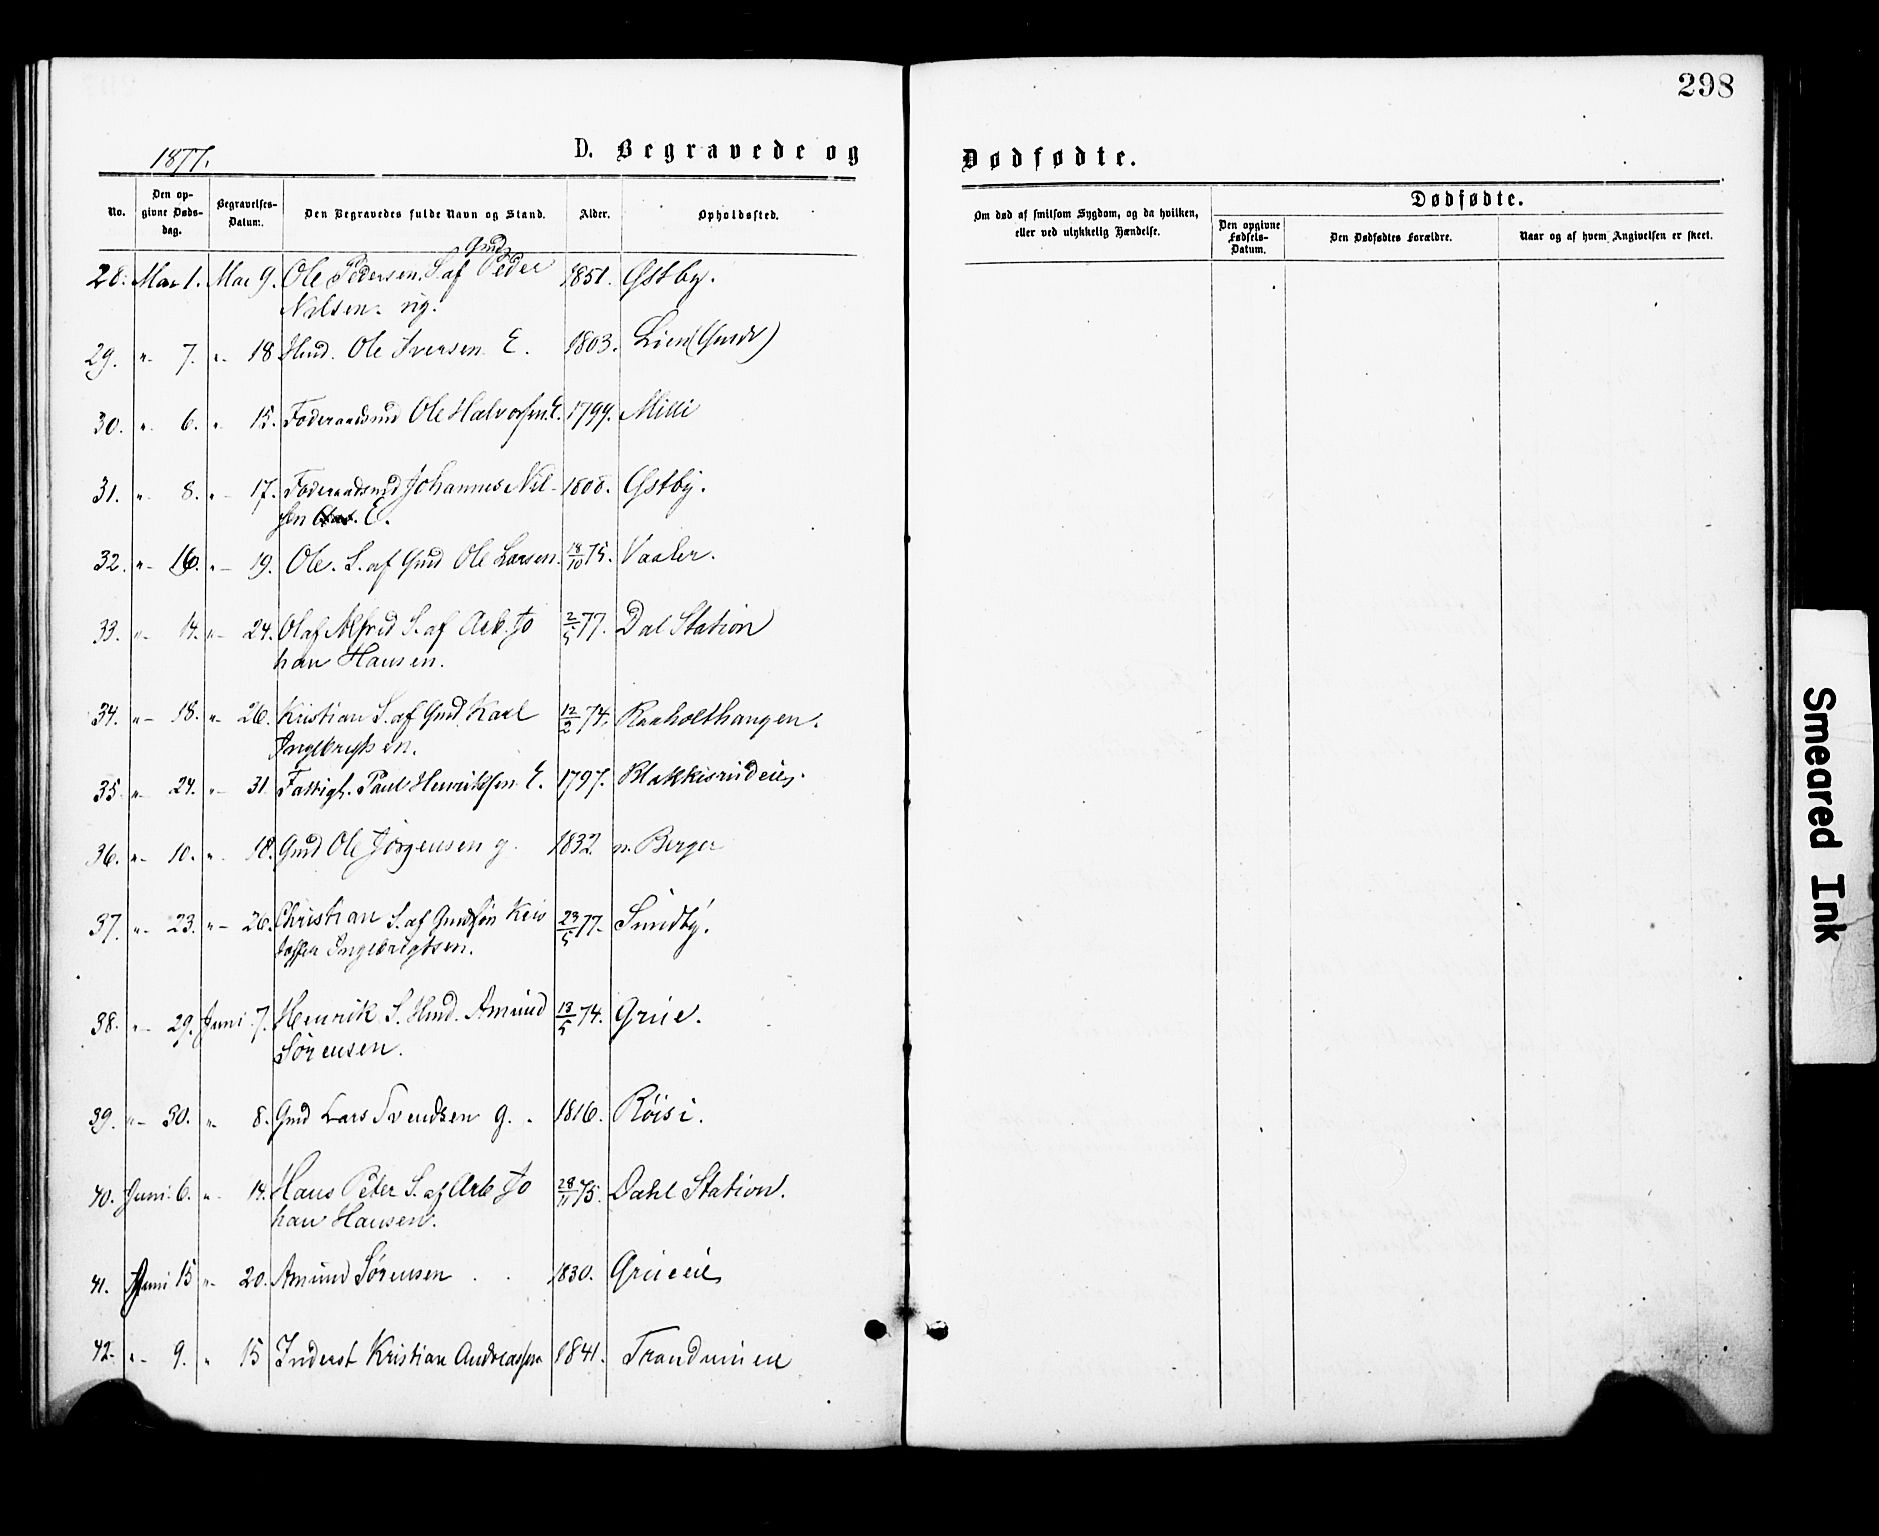 298
1877.
D. Begravede og
Dødfødte.
No.
Den op-
givne Døds-
dag.
Begravelses-
Datum.
Den Begravedes fulde Navn og Stand.
Alder.
Opholdssted.
Om død af smitsom Sygdom, og da hvilken,
eller ved ulykkelig Hændelse.
Dødfødte.
Den opgivne
Fødsels-
Datum.
Den Dødfødtes Forældre.
Naar og af hvem Angivelsen er skeet.
Gmd
28. Mai 1. Mai 9. Ole Pedersen. S. af Peder 1851. Østby.
Nilsen. ug.
29. "- 7. "- 18 Hmd. Ole Iversen E. 1803. Lien
30. "- 6. "- 15. Foderaadsmd Ole Halvorsen. E. 1799. Milli
31. "- 8. "- 17. Foderaadsmd Johannes Nil- 1808. Østby.
sen E.
32. "- 16. "- 19. Ole. S. af Gmd Ole Larsen. 18/10 75. Vaaler.
33. "- 14. "- 24. Olaf Alfred S. af Arb. Jo 2/5 77. Dal Station
han Hansen.
34. "- 18. "- 26. Kristian S. af Gmd. Karl 12/2 74. Raaholthaugen.
Ingebrigtsen.
35. "- 24. "- 31. Fattigl. Paul Henriksen E. 1797. Blakkisrudeie.
36. "- 10. "- 18. Gmd Ole Jörgensen g. 1832. n. Berger
37. "- 23. "- 26. Christian S. af Gmd Kris 23/5 77. Sundby.
toffer Ingebrigtsen.
38. "- 29. Juni 7. Henrik S. Hmd. Amund 13/5 74. Grue.
Sörensen.
39. "- 30. "- 8. Gmd Lars Svendsen g. 1816. Röisi.
40. Juni 6. "- 14. Hans Peter S. af Arb Jo 28/11 75. Dahl Station.
han Hansen.
41. Juni 15 "- 20. Amund Sörensen 1830. Grueeie
42. "- 9. " 15 Inderst Kristian Andreassen 1841. Trandumeie
Smeared Ink